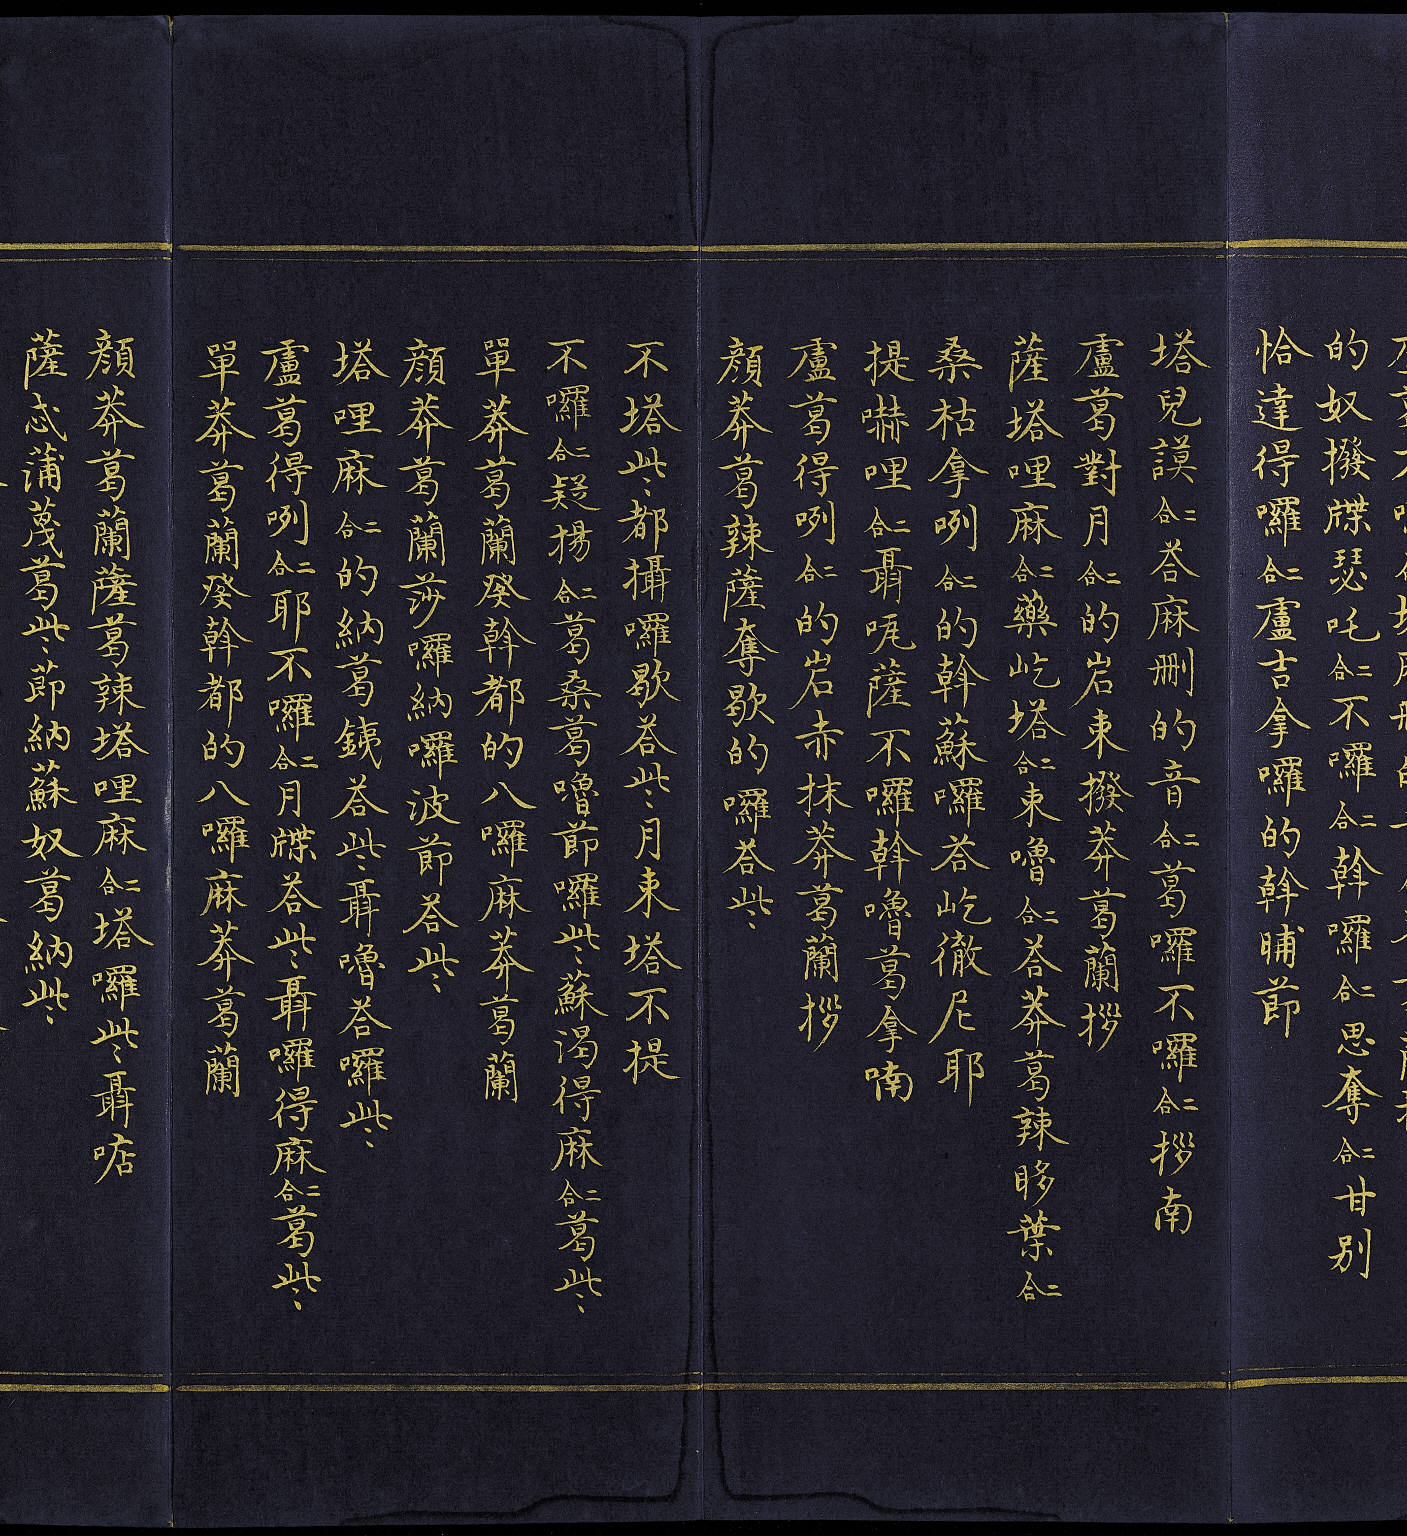 的奴撥牒瑟吒二合不囉二合斡囉二合思奪二合甘别
恰達得囉二合盧吉拿囉的斡晡節
塔兒謨二合荅麻刪的音二合葛囉不囉二合拶南
盧葛對月二合的岩東撥莽葛蘭拶
薩塔哩麻二合藥屹塔二合東嚕二合荅莽葛辣哆葉二合
桑枯拿咧二合的斡蘇囉荅屹徹尼耶
提嚇哩二合聶㖏薩不囉斡嚕葛拿喃
盧葛得咧二合的岩赤抹莽葛蘭拶
顔莽葛辣薩奪歇的囉荅些
不塔些都攝囉歇荅些月東塔不提
不囉二合疑揚二合葛桑葛嚕節囉些蘇渴得麻二合葛些
單莽葛蘭癹斡都的八囉麻莽葛蘭
顔莽葛蘭莎囉納囉波節荅些
塔哩麻二合的納葛銕荅些聶嚕荅囉些
盧葛得咧二合耶不囉二合月牒荅些聶囉得麻二合葛些
單莽葛蘭癹斡都的八囉麻莽葛蘭
顔莽葛蘭薩葛辣塔哩麻二合塔囉些聶㖠
薩忒蒲蔑葛些節納蘇奴葛納些